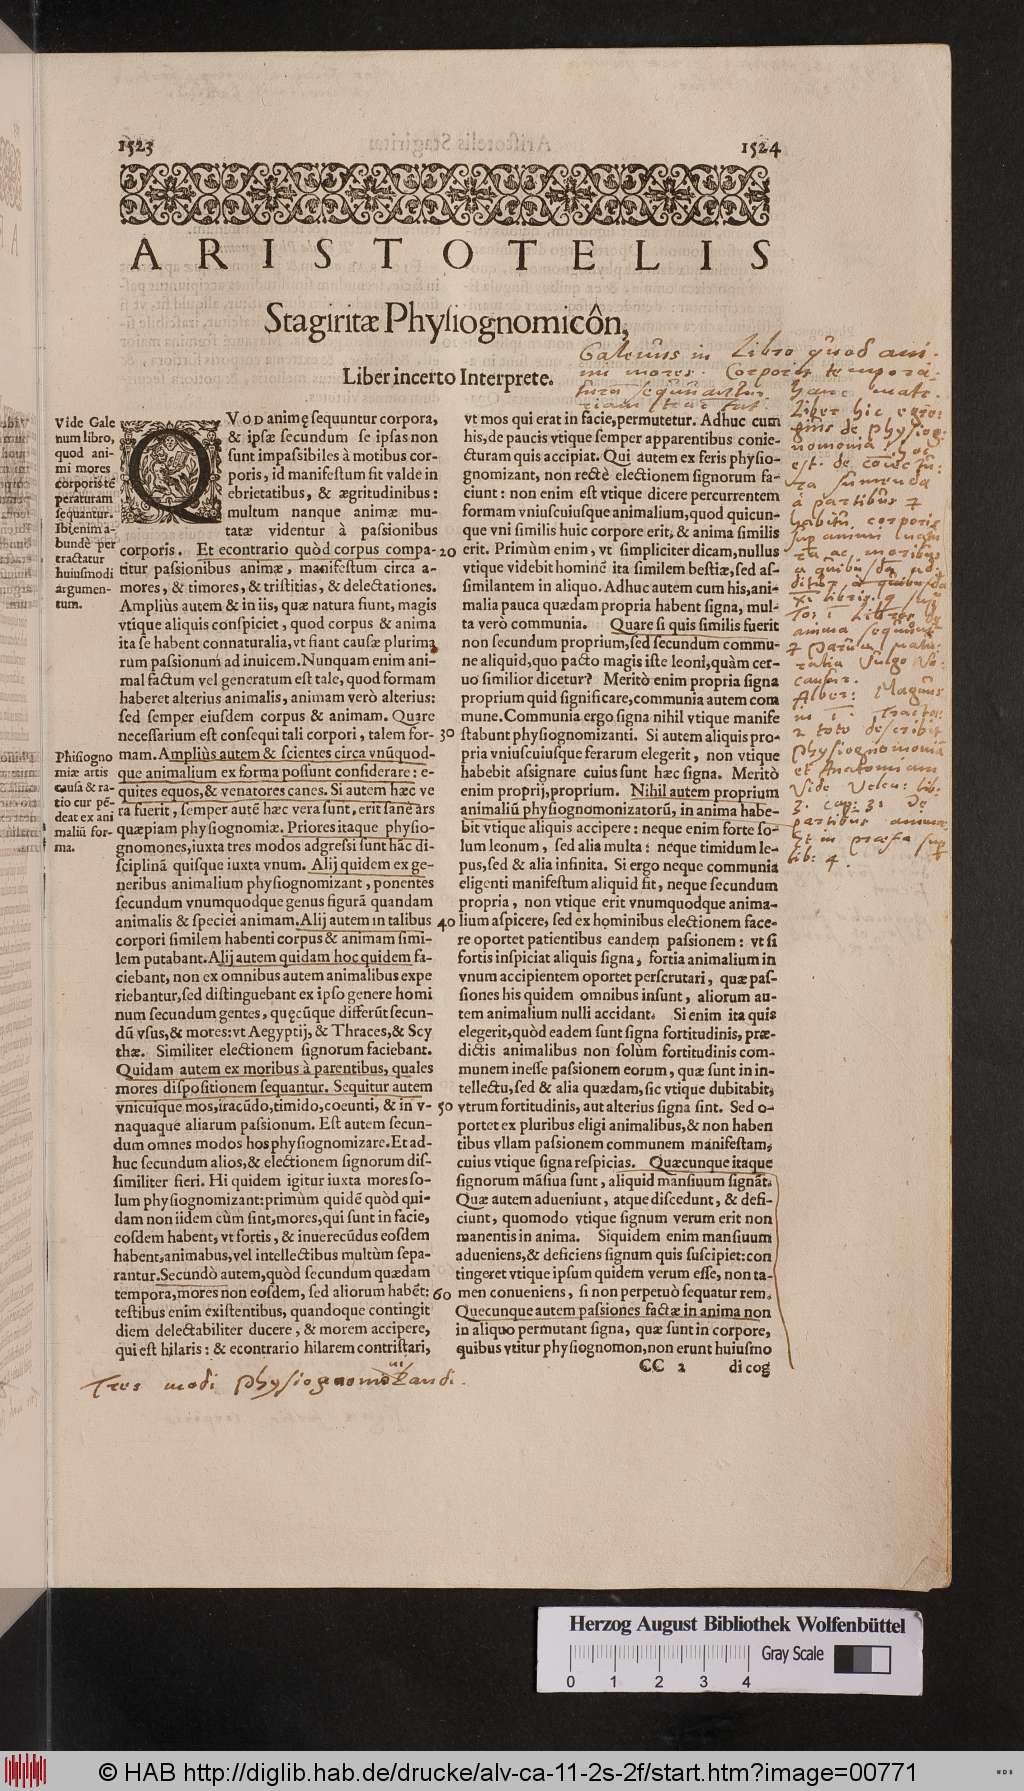 1523
1524
ARISTOTELIS
Stagiritæ Physiognomicôn,
Liber incerto Interprete.
Vide Gale
num libro,
quod ani-
mi mores
corporis tẽ
peraturam
sequantur.
Ibi enim a-
bundè per
tractatur
huiusmodi
argumen-
tum.
Phisiogno
miæ artis
causa & ra-
tio cur pẽ-
deat ex ani
maliũ for-
ma.
QVOD animę sequuntur corpora,
& ipsæ secundum se ipsas non
sunt impassibiles à motibus cor-
poris, id manifestum fit valde in
ebrietatibus, & ægritudinibus:
multum nanque animæ mu-
tatæ videntur à passionibus
corporis. Et econtrario quòd corpus compa-
titur passionibus animæ, manifestum circa a-
mores, & timores, & tristitias, & delectationes.
Ampliùs autem & in iis, quæ natura fiunt, magis
vtique aliquis conspiciet, quod corpus & anima
ita se habent connaturalia, vt fiant causæ plurima
rum passionum ad inuicem. Nunquam enim ani-
mal factum vel generatum est tale, quod formam
haberet alterius animalis, animam verò alterius:
sed semper eiusdem corpus & animam. Quare
necessarium est consequi tali corpori, talem for-
mam. Ampliùs autem & scientes circa vnũquod-
que animalium ex forma possunt considerare: e-
quites equos, & venatores canes. Si autem hæc ve
ra fuerit, semper autẽ hæc vera sunt, erit sanè ars
quæpiam physiognomiæ. Priores itaque physio-
gnomones, iuxta tres modos adgressi sunt hãc di-
sciplinã quisque iuxta vnum. Alij quidem ex ge-
neribus animalium physiognomizant, ponentes
secundum vnumquodque genus figurã quandam
animalis & speciei animam. Alij autem in talibus
corpori similem habenti corpus & animam simi-
lem putabant. Alij autem quidam hoc quidem fa-
ciebant, non ex omnibus autem animalibus expe
riebantur, sed distinguebant ex ipso genere homi
num secundum gentes, quęcũque differũt secun-
dũ vsus, & mores: vt Aegyptij, & Thraces, & Scy
thæ. Similiter electionem signorum faciebant.
Quidam autem ex moribus à parentibus, quales
mores dispositionem sequantur. Sequitur autem
vnicuique mos, iracũdo, timido, coeunti, & in v-
naquaque aliarum passionum. Est autem secun-
dum omnes modos hos physiognomizare. Et ad-
huc secundum alios, & electionem signorum dis-
similiter fieri. Hi quidem igitur iuxta mores so-
lum physiognomizant: primùm quidẽ quòd qui-
dam non iidem cùm sint, mores, qui sunt in facie,
eosdem habent, vt fortis, & inuerecũdus eosdem
habent, animabus, vel intellectibus multùm sepa-
rantur. Secundò autem, quòd secundum quædam
tempora, mores non eosdem, sed aliorum habẽt:
testibus enim existentibus, quandoque contingit
diem delectabiliter ducere, & morem accipere,
qui est hilaris: & econtrario hilarem contristari,
20
30
40
50
60
vt mos qui erat in facie, permutetur. Adhuc cum
his, de paucis vtique semper apparentibus conie-
cturam quis accipiat. Qui autem ex feris physio-
gnomizant, non rectè electionem signorum fa-
ciunt: non enim est vtique dicere percurrentem
formam vniuscuiusque animalium, quod quicun-
que vni similis huic corpore erit, & anima similis
erit. Primùm enim, vt simpliciter dicam, nullus
vtique videbit hominẽ ita similem bestiæ, sed as-
similantem in aliquo. Adhuc autem cum his, ani-
malia pauca quædam propria habent signa, mul-
ta verò communia. Quare si quis similis fuerit
non secundum proprium, sed secundum commu-
ne aliquid, quo pacto magis iste leoni, quàm cer-
uo similior dicetur? Meritò enim propria signa
proprium quid significare, communia autem com
mune. Communia ergo signa nihil vtique manife
stabunt physiognomizanti. Si autem aliquis pro-
pria vniuscuiusque ferarum elegerit, non vtique
habebit assignare cuius sunt hæc signa. Meritò
enim proprij, proprium. Nihil autem proprium
animaliũ physiognomonizatorũ, in anima habe-
bit vtique aliquis accipere: neque enim forte so-
lum leonum, sed alia multa: neque timidum le-
pus, sed & alia infinita. Si ergo neque communia
eligenti manifestum aliquid fit, neque secundum
propria, non vtique erit vnumquodque anima-
lium aspicere, sed ex hominibus electionem face-
re oportet patientibus eandem passionem: vt si
fortis inspiciat aliquis signa, fortia animalium in
vnum accipientem oportet perscrutari, quæ pas-
siones his quidem omnibus insunt, aliorum au-
tem animalium nulli accidant. Si enim ita quis
elegerit, quòd eadem sunt signa fortitudinis, præ-
dictis animalibus non solùm fortitudinis com-
munem inesse passionem eorum, quæ sunt in in-
tellectu, sed & alia quædam, sic vtique dubitabit,
vtrum fortitudinis, aut alterius signa sint. Sed o-
portet ex pluribus eligi animalibus, & non haben
tibus vllam passionem communem manifestam,
cuius vtique signa respicias. Quæcunque itaque
signorum mãsiua sunt, aliquid mansiuum signãt.
Quæ autem adueniunt, atque discedunt, & defi-
ciunt, quomodo vtique signum verum erit non
manentis in anima. Siquidem enim mansiuum
adueniens, & deficiens signum quis suscipiet: con
tingeret vtique ipsum quidem verum esse, non ta-
men conueniens, si non perpetuò sequatur rem.
Quecunque autem passiones factæ in anima non
in aliquo permutant signa, quæ sunt in corpore,
quibus vtitur physiognomon, non erunt huiusmo
CC 2 di cog
Galenus in Libro quod ani-
mi mores Corporis tempera-
turã sequuntur hanc mate-
riam
Liber hic
de physiog-
nomonia
est de
sumenda
à partibus
habitu corporis
ac moribus
a quibusdam
libris
anima sequuntur
parua natu-
ralia vulgo
Alber: Magnus
in Tractat
toto describit
physiognomoniã
et Anatomiam
Vide lib:
3. cap: 3. De
partibus animæ
Et in
lib: 4
Tres modi physiognomizandi.
Herzog August Bibliothek Wolfenbüttel
Gray Scale
0 1 2 3 4
© HAB http://diglib.hab.de/drucke/alv-ca-11-2s-2f/start.htm?image=00771